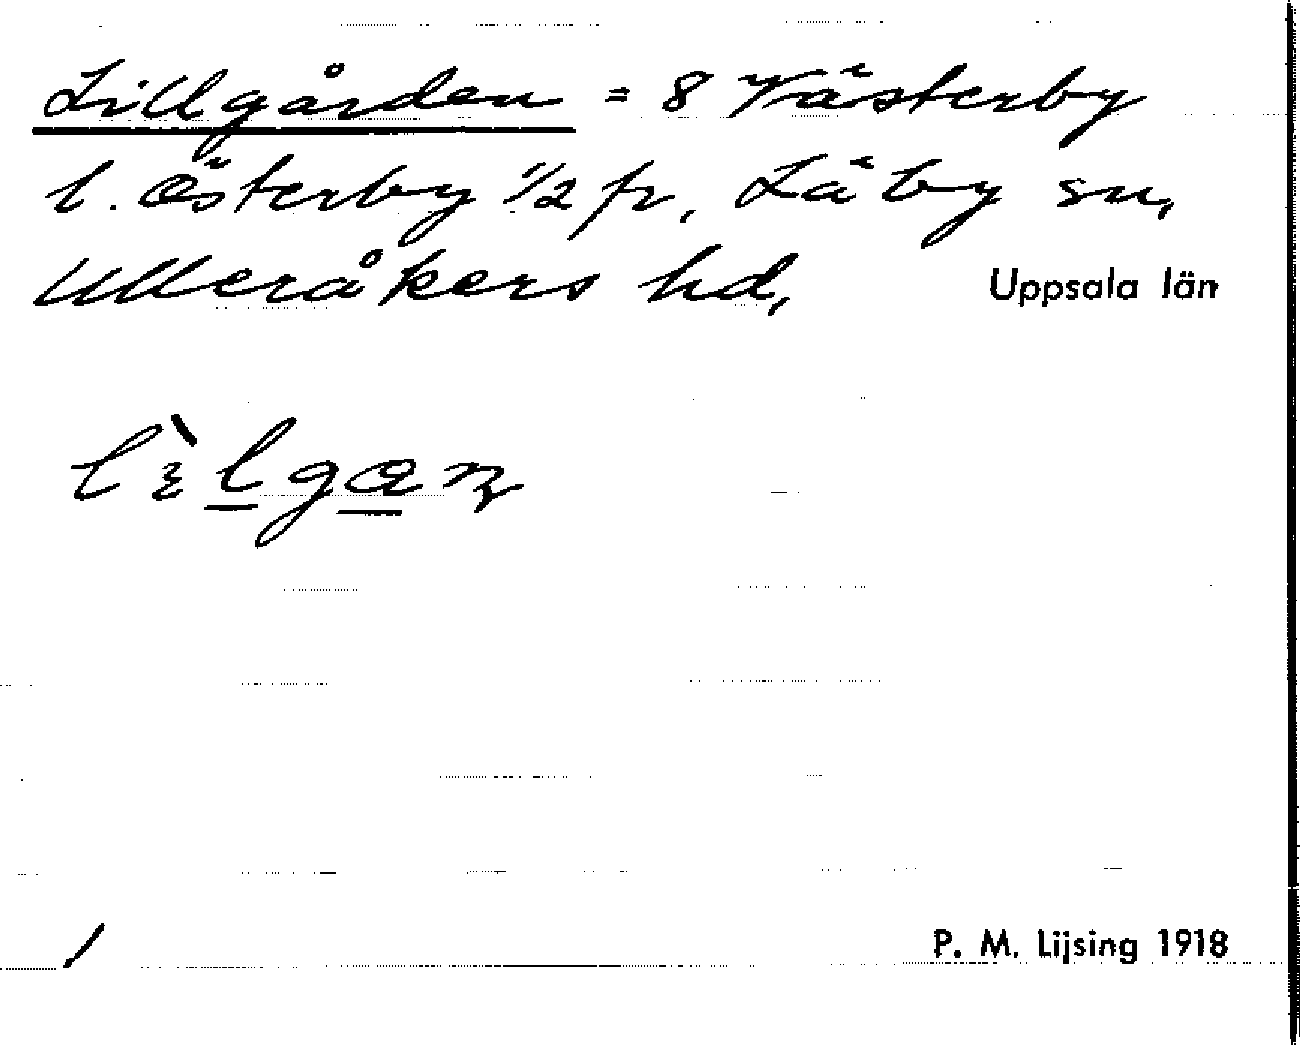 Lillgården = 8 Västerby
l. Österby 1/2 fr, Läby sn,
Ulleråkers hd, Uppsala län
P. M. Lijsing 1918